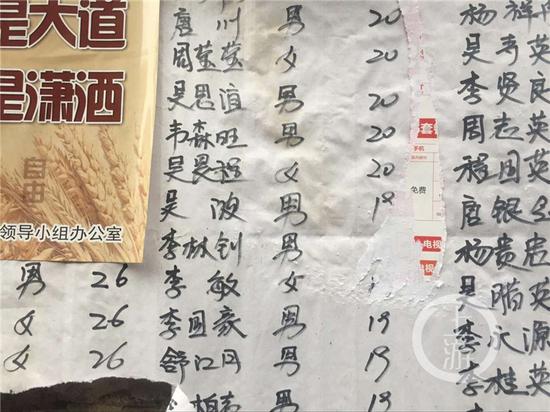 是大道
是潇洒
自由
领导小组办公室
男 26
女 26
女 26
唐 川 男 20
周莹莹 女 20
吴思谊 男 20
韦森旺 男 20
吴晏程 女 20
吴波 男 19
李林钊 男
李敏 女
李国豪 男 19
舒江丹 男 19
柏 男 18
套餐
手机
免费
电视
电视
杨祥
吴秀英
李贤良
周志英
程国英
唐银
杨贵
吴腊英
李永源
李桂英
上游